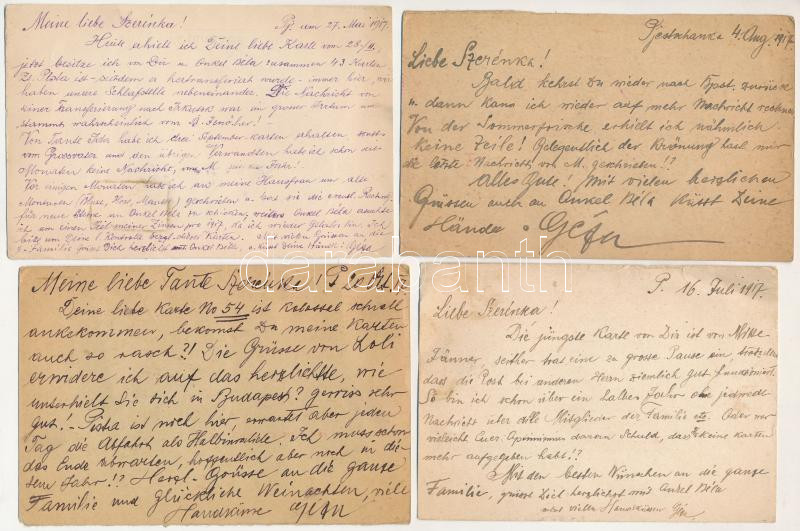 Meine liebe Szerénka! Pj. am 27. Mai 1917.
Heute erhielt ich Deine liebe Karte vom 28/II,
jetzt besitze ich von Dir u Onkel Béla zusammen 43 Karten
Pista ist seitdem er hertransferirt wurde immer hier, wir
haben unsere Schlafstelle nebeneinander. Die Nachricht von
einer Transferierung nach Irkutsk war ein grosser Irrtum und
stammt wahrscheinlich von
Von Tante habe ich drei September-Karten erhalten sonst
vom Grossvater und den übrigen Verwandten habe ich schon seit
Monaten keine Nachricht, von M. Jahr!
Vor einigen Monaten habe ich an meine Hausfrau um alte
Monturen (Bluse, Hose, Mantel) geschrieben u. dass sie die eventl. Rechnung
für neue an Onkel Béla zu schicken, weiters Onkel Béla
um einen Teil meiner Zinsen pro 1917, da ich Ich
bitte um Deine Karten. Mit vielen Grüssen an die
Familie grüsst Dich herzlichst Onkel Béla, u küsst Deine Hände: Géza
Pjestschanka 4. Aug. 1917.
Liebe Szerénka!
Bald kehrst Du wieder nach Bpst. zurück
u dann kann ich wieder auf mehr Nachricht rechnen
Von der Sommerfrische erhielt ich nähmlich
keine Zeile! Gelegentlich der Krönung hast mir
die letzte Nachricht von M. geschrieben!?
Alles Gute! Mit vielen herzlichen
Grüssen auch an Onkel Béla küsst Deine
Hände Géza
Meine liebe Tante Szerénka! P 20
Deine liebe Karte No 54 ist kolossal schnell
angekommen, bekomst Du meine Karten
auch so rasch?! Die Grüsse von Loli
erwidere ich auf das herzlichste, wie
unterhielt Sie sich in Budapest? gewiss sehr
gut. - Pista ist noch hier, erwartet aber jeden
Tag die Abfahrt als Halbinvalide. Ich muss schon
das Ende abwarten, hoffentlich aber noch in die-
sem Jahr!? Herzl. Grüsse an die ganze
Familie und glückliche Weinachten, viele
Handküsse Géza
P. 16. Juli 1917.
Liebe Szerénka!
Die jüngste Karte von Dir ist von Mitte
Jänner seither trat eine zu grosse Pause ein trotzdem
dass die Post bei anderen Herrn ziemlich gut funktioniert.
So bin ich schon über ein halbes Jahr ohne jedwede
Nachricht über alle Mitglieder der Familie etz. Oder war
vielleicht Euer Optimismus daran Schuld, dass Ihr keine Karten
mehr aufgegeben habt!?
Mit den besten Wünschen an die ganze
Familie, grüsst Dich herzlichst mit Onkel Béla
und vielen Handküssen Géza
darabanth